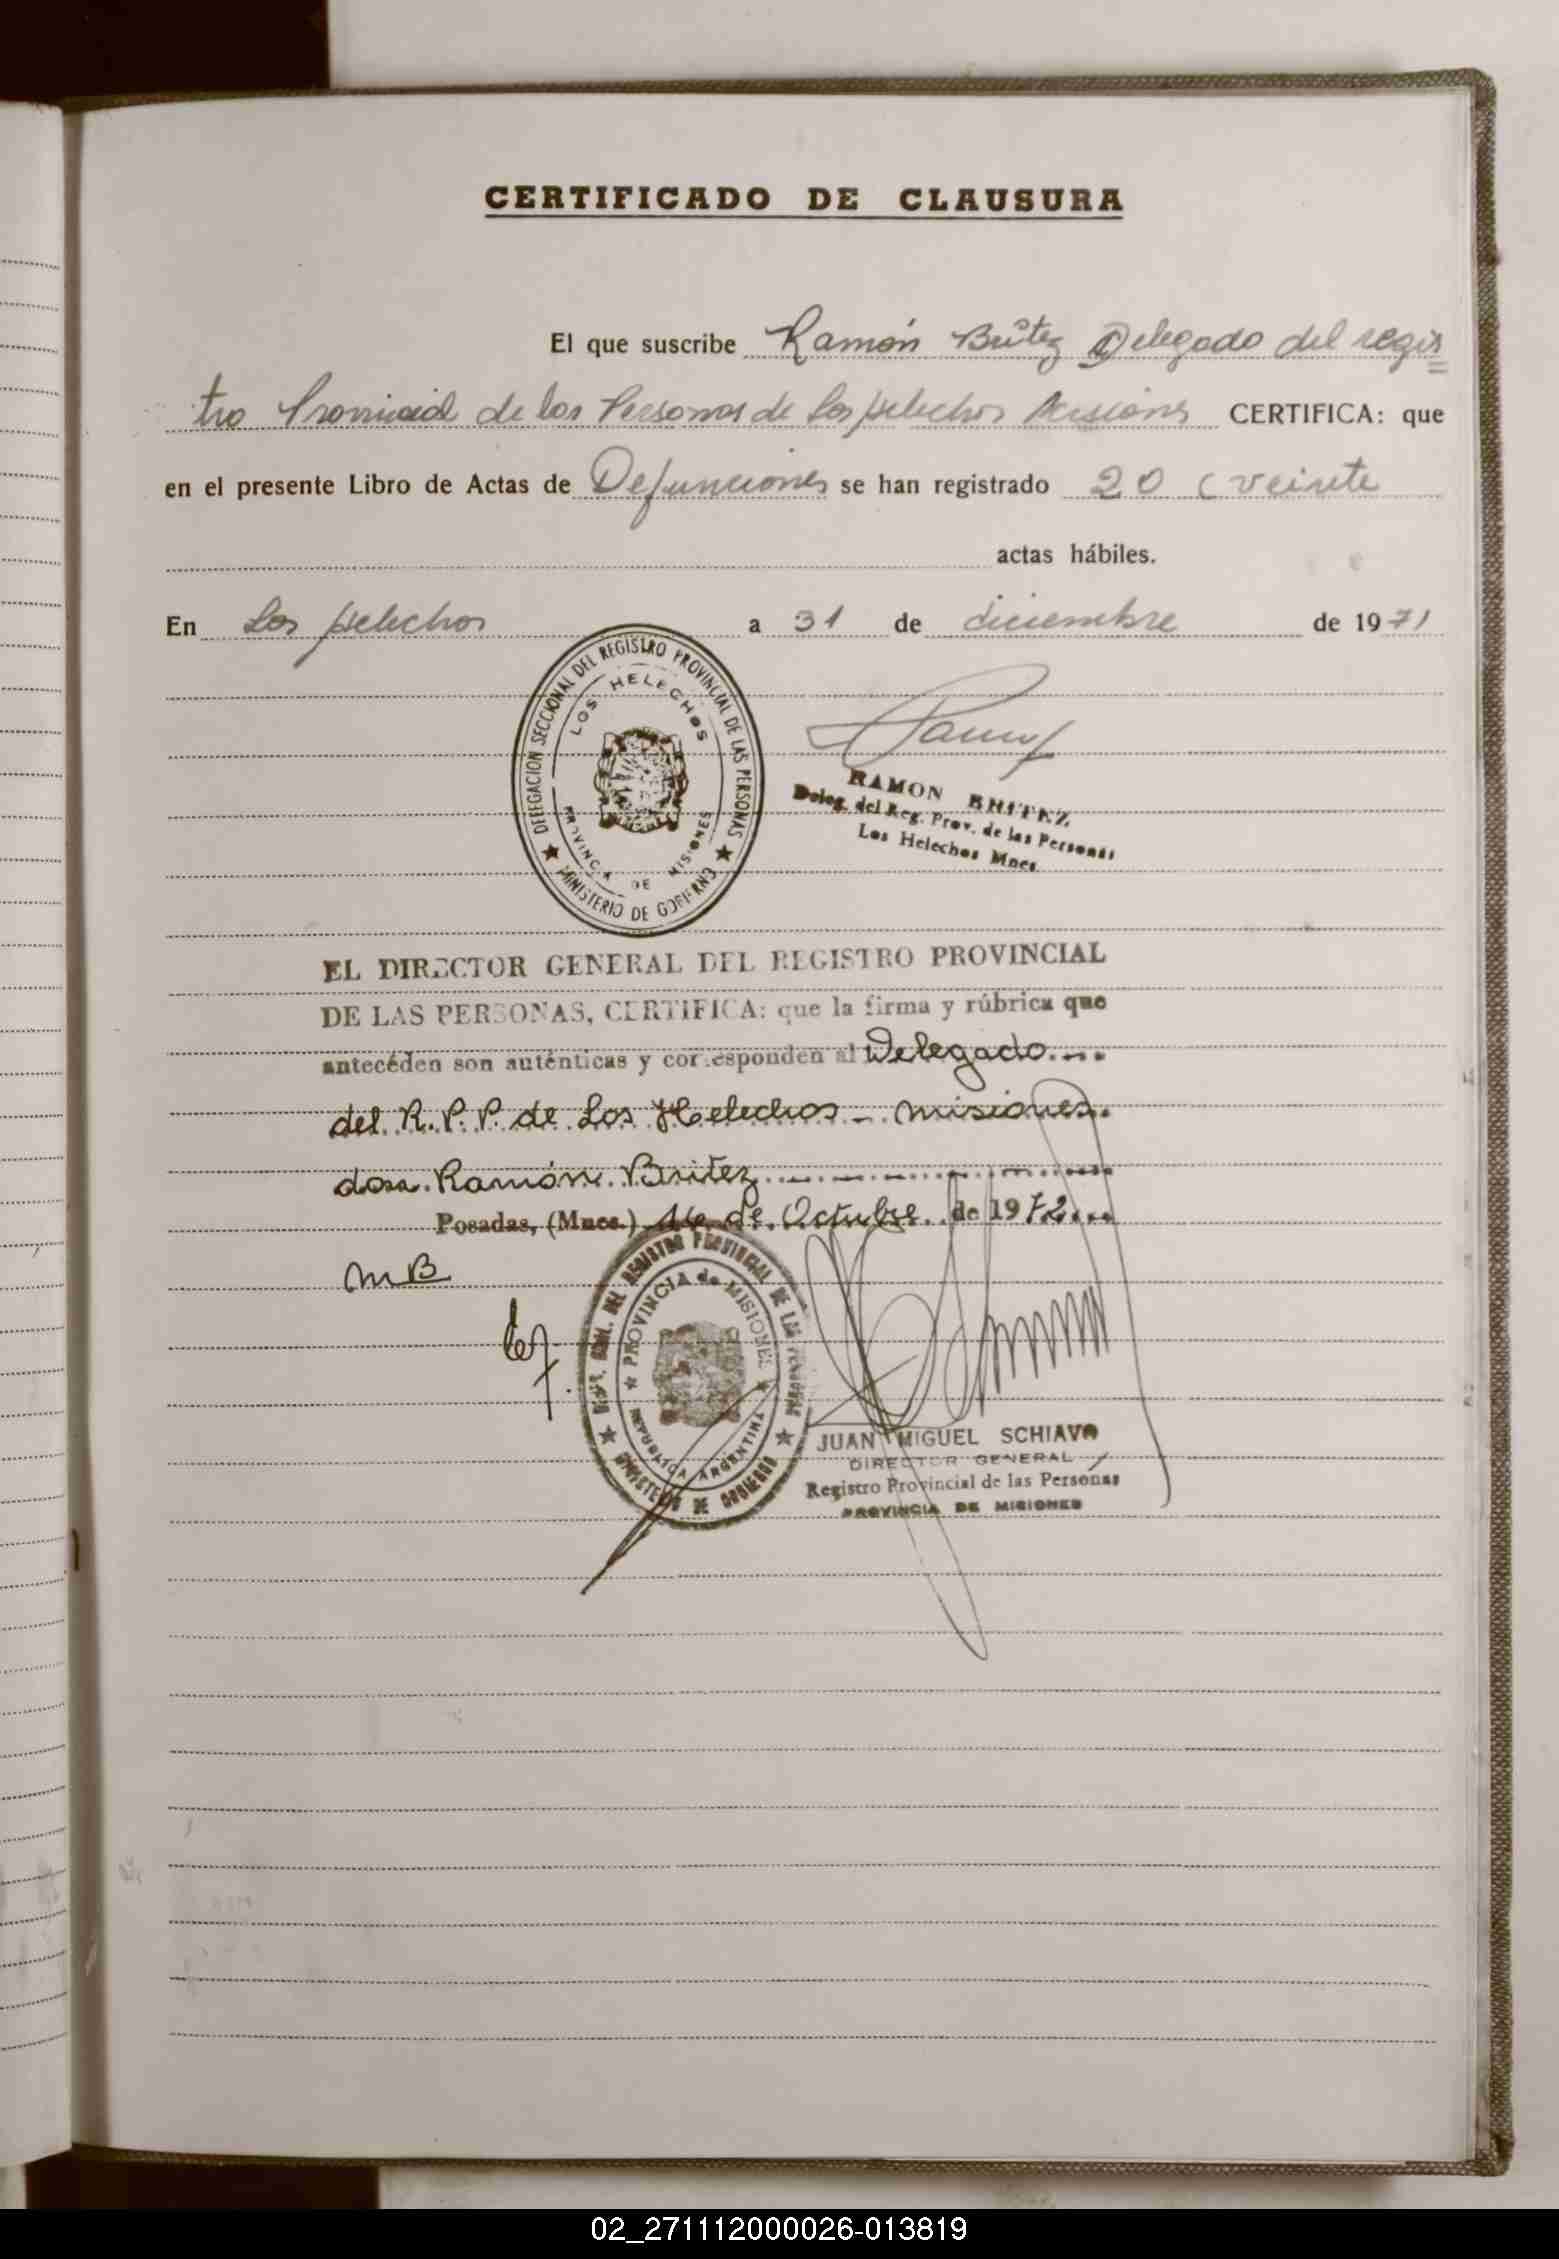 CERTIFICADO DE CLAUSURA
El que suscribe Ramón Britez Delegado del regis
tro Provincial de los Personas de Los Helechos Misiones CERTIFICA: que
en el presente Libro de Actas de Defunciones se han registrado 20 (veinte
actas hábiles.
En Los Helechos a 31 de diciembre de 1971
DELEGACION SECCIONAL DEL REGISTRO PROVINCIAL DE LAS PERSONAS
LOS HELECHOS
PROVINCIA DE MISIONES
MINISTERIO DE GOBIERNO
RAMON BRITEZ
Deleg. del Reg. Prov. de las Personas
Los Helechos Mnes.
EL DIRECTOR GENERAL DEL REGISTRO PROVINCIAL
DE LAS PERSONAS, CERTIFICA: que la firma y rúbrica que
antecéden son auténticas y corresponden al Delegado
del R. P. P. de Los Helechos - misiones.
don Ramón Britez
Posadas, (Mnes.) 16 de Octubre de 1972
MB
DEL REGISTRO PROVINCIAL DE LAS PERSONAS
PROVINCIA de MISIONES
REPUBLICA ARGENTINA
MINISTERIO DE GOBIERNO
JUAN MIGUEL SCHIAVO
DIRECTOR GENERAL
Registro Provincial de las Personas
PROVINCIA DE MISIONES
02_271112000026-013819